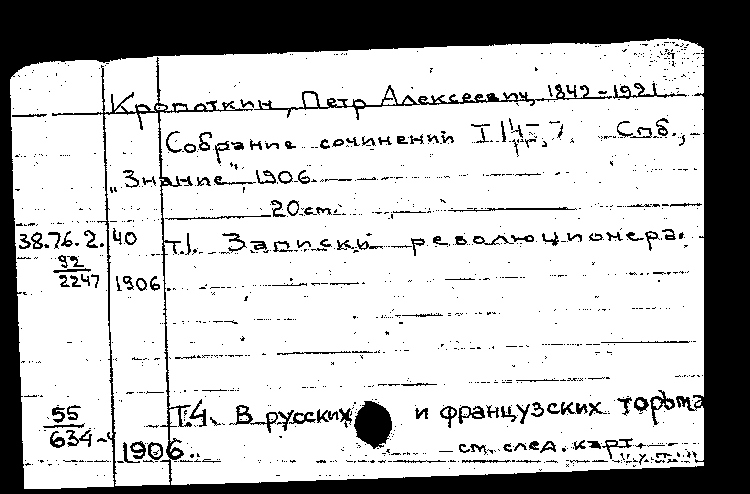 Кропоткин, Петр Алексеевич, 1842-1921.
Собрание сочинений Т. 1, 4, 5, 7. Спб.,
„Знание", 1906.
20 cm.
38.76.2. 40 т.1. Записки революционера.
92
2247 1906.
55
634-4 Т.4. В русских и французских торьма
1906.. см. след. карт.